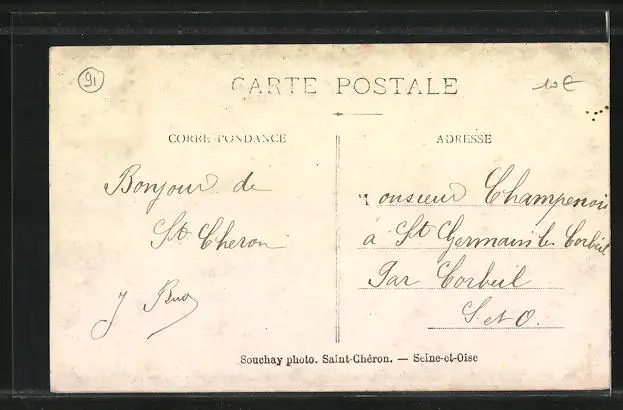 91
CARTE POSTALE
10€
CORRESPONDANCE
ADRESSE
Bonjour de
St Cheron
J
Monsieur Champenois
à St Germain les Corbeil
Par Corbeil
S. et O.
Souchay photo. Saint-Chéron. — Seine-et-Oise